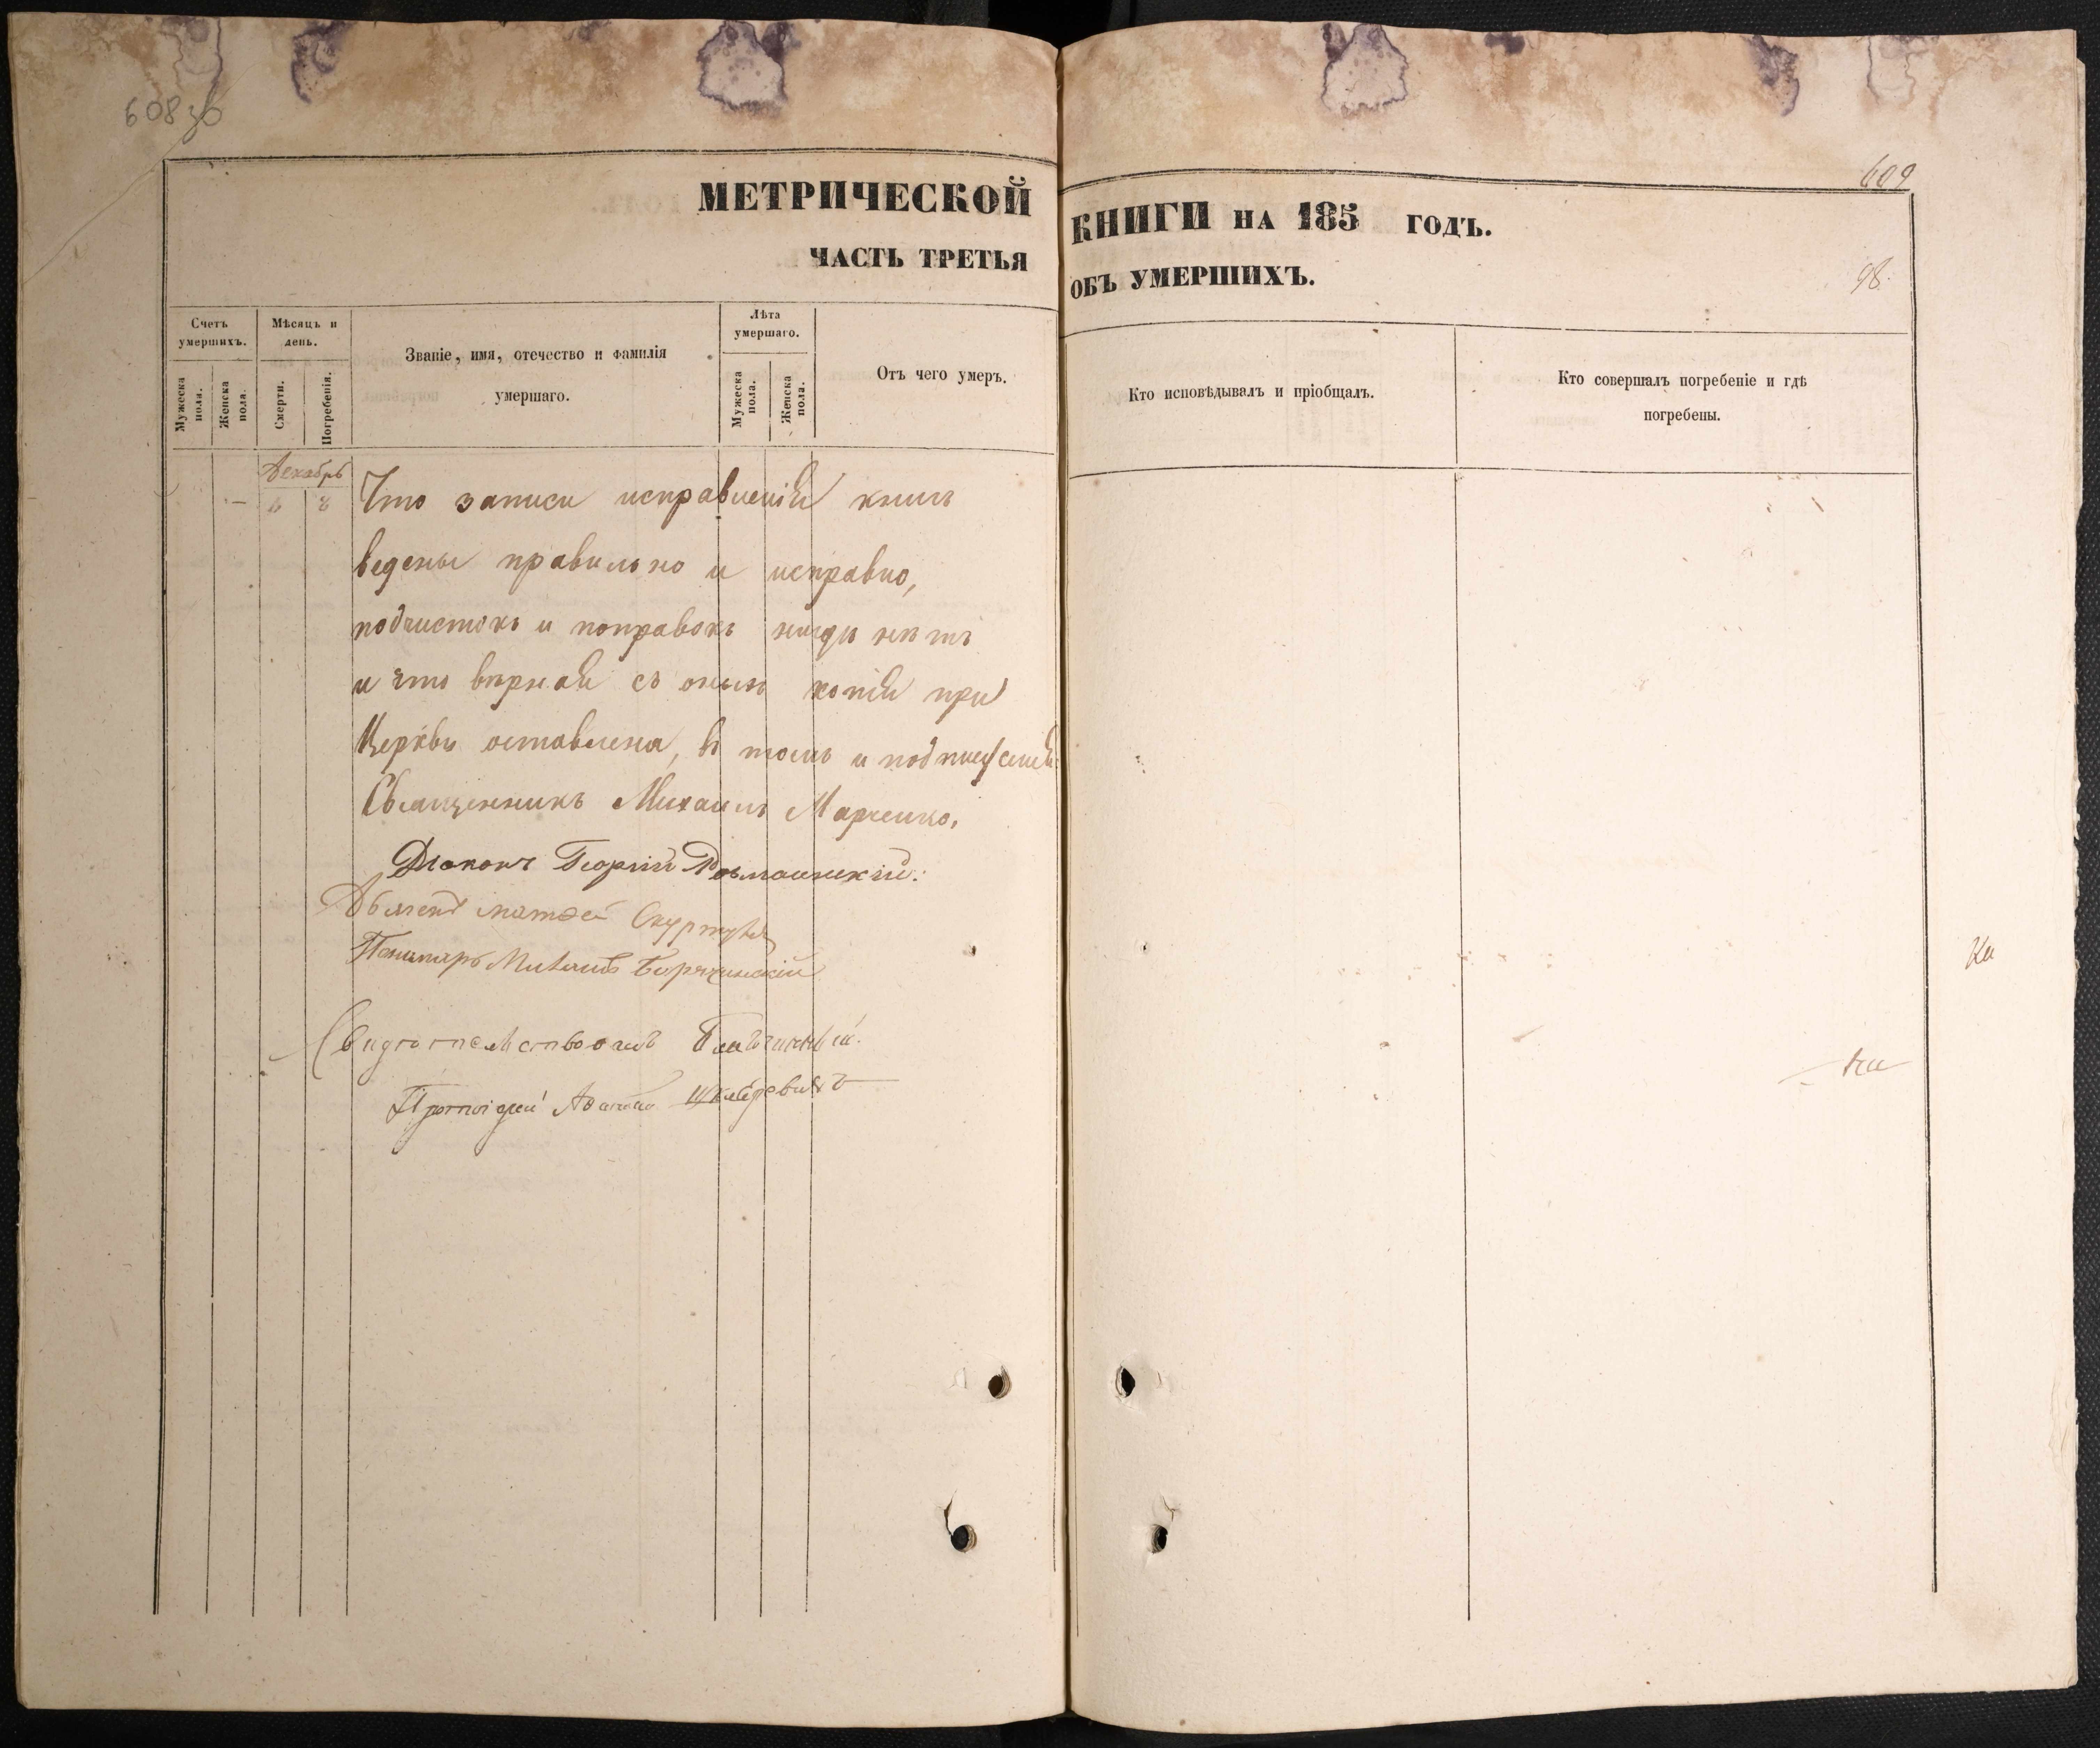 608 зв
609
МЕТРИЧЕСКОЙ КНИГИ НА 185 ГОДЪ.
ЧАСТЬ ТРЕТЬЯ ОБЪ УМЕРШИХЪ.
98.
Счетъ умершихъ.
Мужеска пола.
Женска пола.
Мѣсяцъ и день.
Смерти.
Погребенія.
Званіе, имя, отечество и фамилія умершаго.
Лѣта умершаго.
Мужеска пола.
Женска пола.
Отъ чего умеръ.
Кто исповѣдывалъ и пріобщалъ.
Кто совершалъ погребеніе и гдѣ погребены.
Декабрь
6 8
Что записи книги
ведены правильно и исправно,
подчистокъ и поправокъ нигдѣ нѣтъ
и что вѣрная съ оныхъ копія при
Церкви оставлена, въ томъ и
Священникъ Михаилъ Марченко.
Діаконъ Георгій
Дьячекъ Матвей
Пономарь Михаилъ
Свидѣтельствовалъ Благочинный
Протоіерей